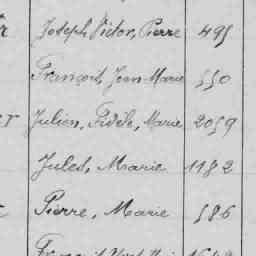 Joseph Victor, Pierre 495
François, Jean Marie 550
Julien, Fidèle, Marie 2059
Jules, Marie 1182
Pierre, Marie 586